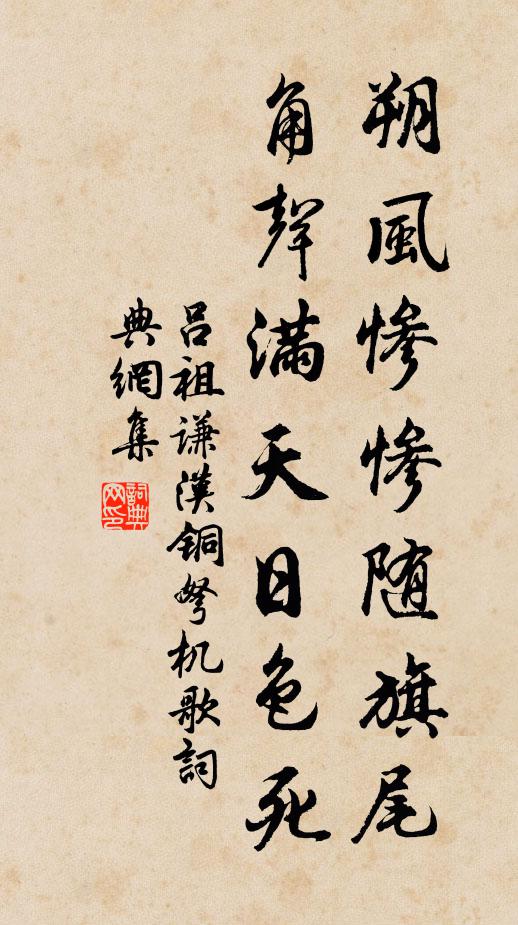 朔風慘慘随旗尾
角聲滿天日色死
呂祖謙漢銅弩机歌詞
典網集
詞典网印